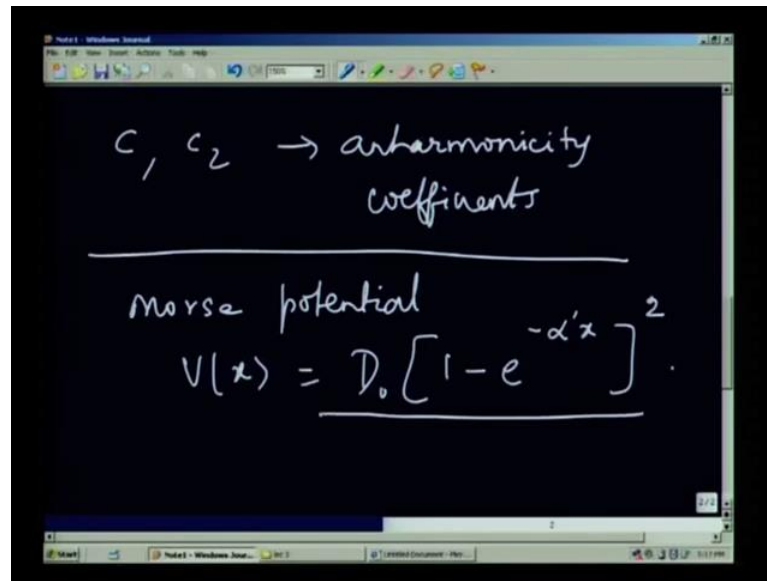 Note1 - Windows Journal
File Edit View Insert Actions Tools Help
C, C₂ → anharmonicity
coefficients
Morse potential
V(x) = D₀[1 - e^{-α'x}]² .
2/2
2
Start
Note1 - Windows Jour...
lec 3
5:17 PM